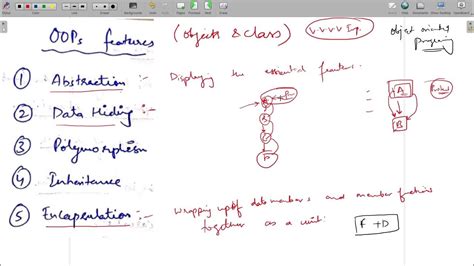 OOPs features (objects & class) V.V.V.V Imp. Object oriented
① Abstraction :- Displaying the essential features.
② Data Hiding :-
③ Polymorphism
④ Inheritance
⑤ Encapsulation :- Wrapping up of data members and member functions
together as a unit. F + D
A
B